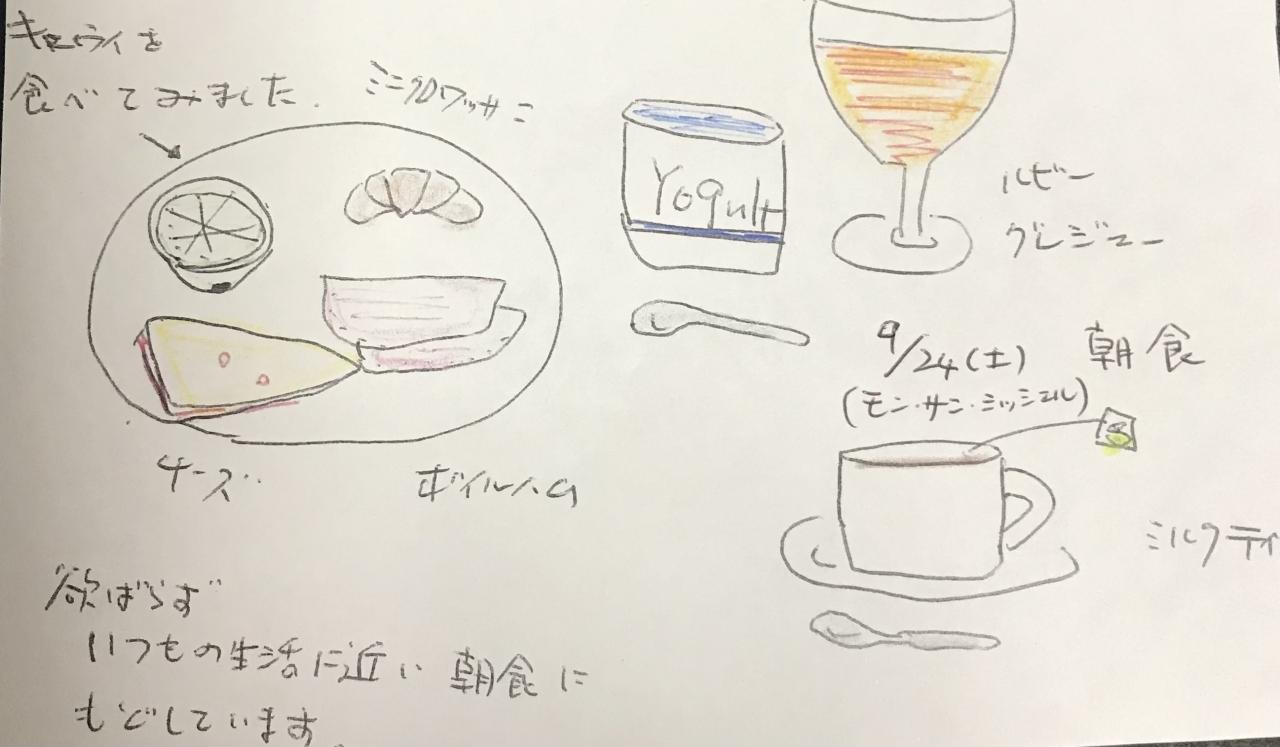 キュウイを
食べてみました.
ミニクロワッサン
Yogult
ルビー
グレジュー
9/24(土) 朝食
(モン・サン・ミッシェル)
チーズ
ボイルハム
ミルクティ
欲ばらず
いつもの生活に近い 朝食に
もどしています。